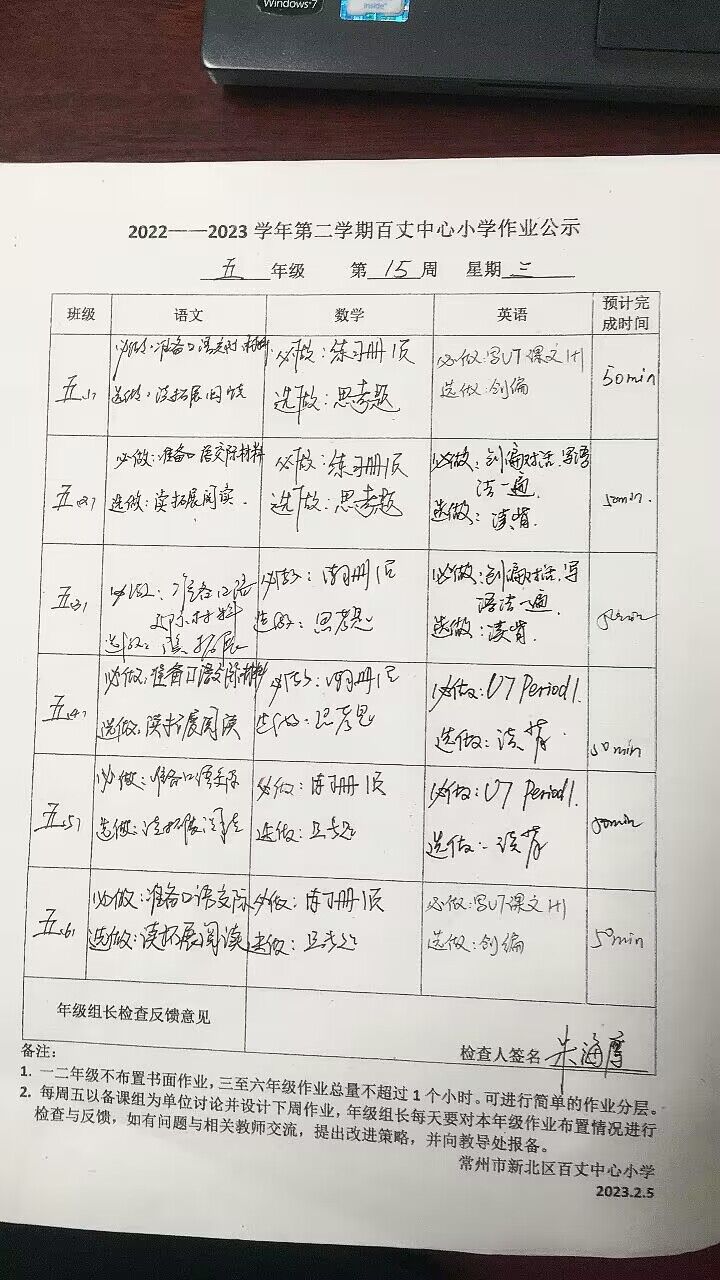 Windows 7
inside
2022——2023 学年第二学期百丈中心小学作业公示
五 年级 第 15 周 星期 三
班级 语文 数学 英语 预计完成时间
五(1)
必做:准备口语交际材料
选做:读拓展阅读
必做:练习册1页
选做:思考题
必做:写U7课文1H
选做:创编
50min
五(2)
必做:准备口语交际材料
选做:读拓展阅读.
必做:练习册1页
选做:思考题
必做:创编对话.写语
法一遍.
选做:读背.
50min.
五(3)
必做:准备口语
交际材料
选做:读拓展
必做:练习册1页
选做:思考题
必做:创编对话.写
语法一遍.
选做:读背.
50min
五(4)
必做:准备口语交际材料
选做:读拓展阅读
必做:练习册1页
选做:思考题
必做:U7 Period1.
选做:读背.
50min
五(5)
必做:准备口语交际
选做:读拓展阅读
必做:练习册1页
选做:思考题
必做:U7 Period1.
选做:读背
50min
五(6)
必做:准备口语交际
选做:读拓展阅读
必做:练习册1页
选做:思考题
必做:写U7课文1H
选做:创编
50min
年级组长检查反馈意见
检查人签名 朱海霞
备注:
1. 一二年级不布置书面作业,三至六年级作业总量不超过1个小时。可进行简单的作业分层。
2. 每周五以备课组为单位讨论并设计下周作业,年级组长每天要对本年级作业布置情况进行
检查与反馈,如有问题与相关教师交流,提出改进策略,并向教导处报备。
常州市新北区百丈中心小学
2023.2.5